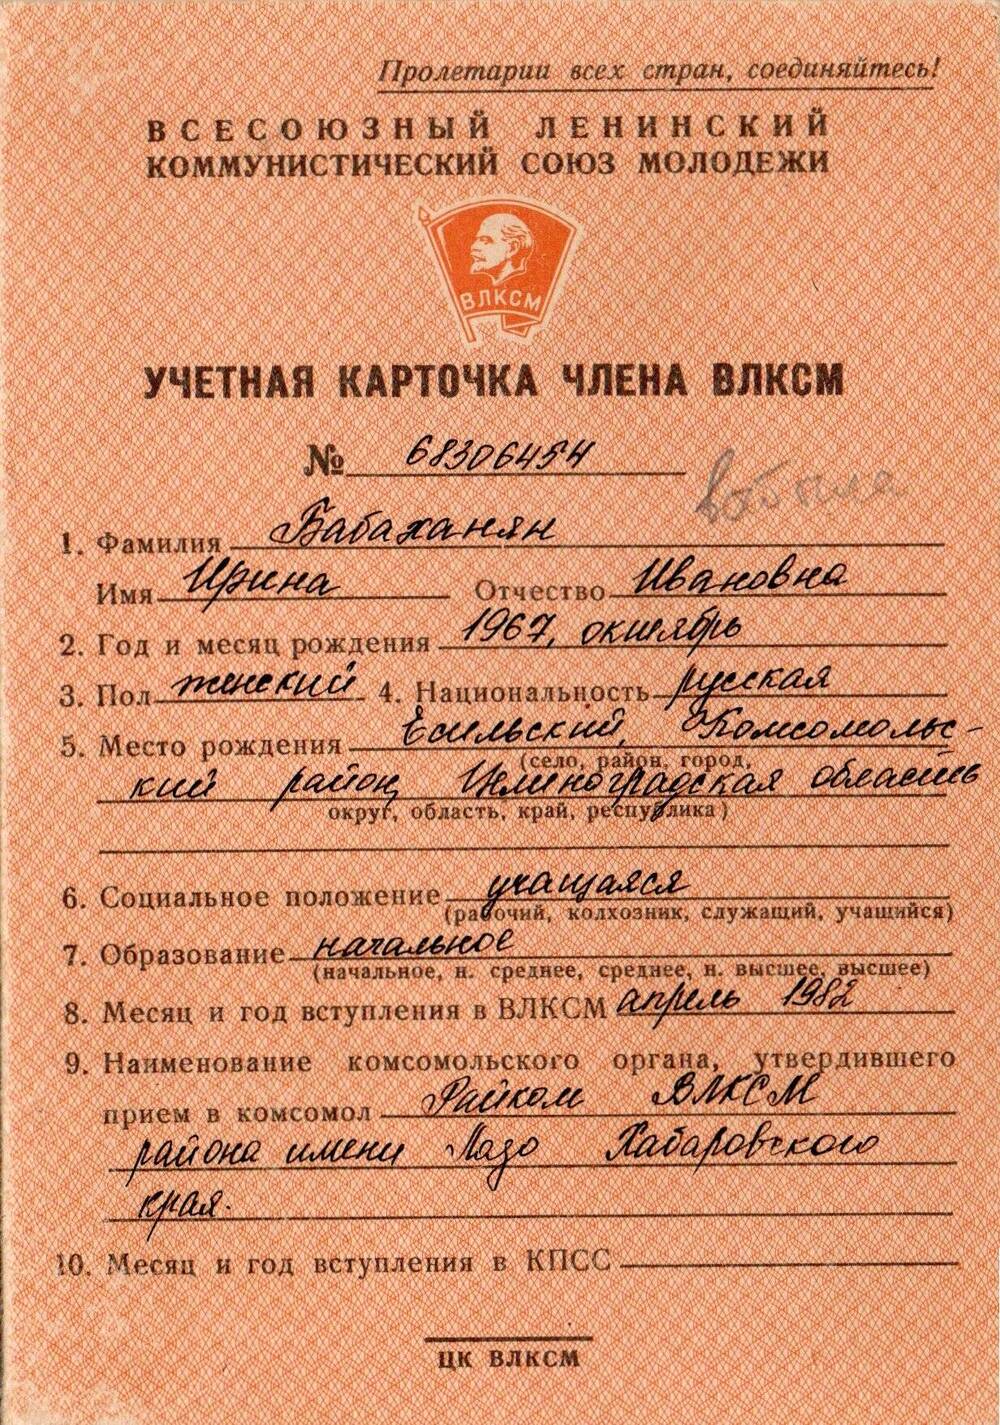 Пролетарии всех стран, соединяйтесь!
ВСЕСОЮЗНЫЙ ЛЕНИНСКИЙ
КОММУНИСТИЧЕСКИЙ СОЮЗ МОЛОДЕЖИ
ВЛКСМ
УЧЕТНАЯ КАРТОЧКА ЧЛЕНА ВЛКСМ
№ 68306454
выбыла
1. Фамилия Бабаханян
Имя Ирина Отчество Ивановна
2. Год и месяц рождения 1967, октябрь
3. Пол женский 4. Национальность русская
5. Место рождения Есильский, Комсомольс-
(село, район, город,
кий район, Целиноградская область
округ, область, край, республика)
6. Социальное положение учащаяся
(рабочий, колхозник, служащий, учащийся)
7. Образование начальное
(начальное, н. среднее, среднее, н. высшее, высшее)
8. Месяц и год вступления в ВЛКСМ апрель 1982
9. Наименование комсомольского органа, утвердившего
прием в комсомол Райком ВЛКСМ
района имени Лазо Хабаровского
края.
10. Месяц и год вступления в КПСС
ЦК ВЛКСМ